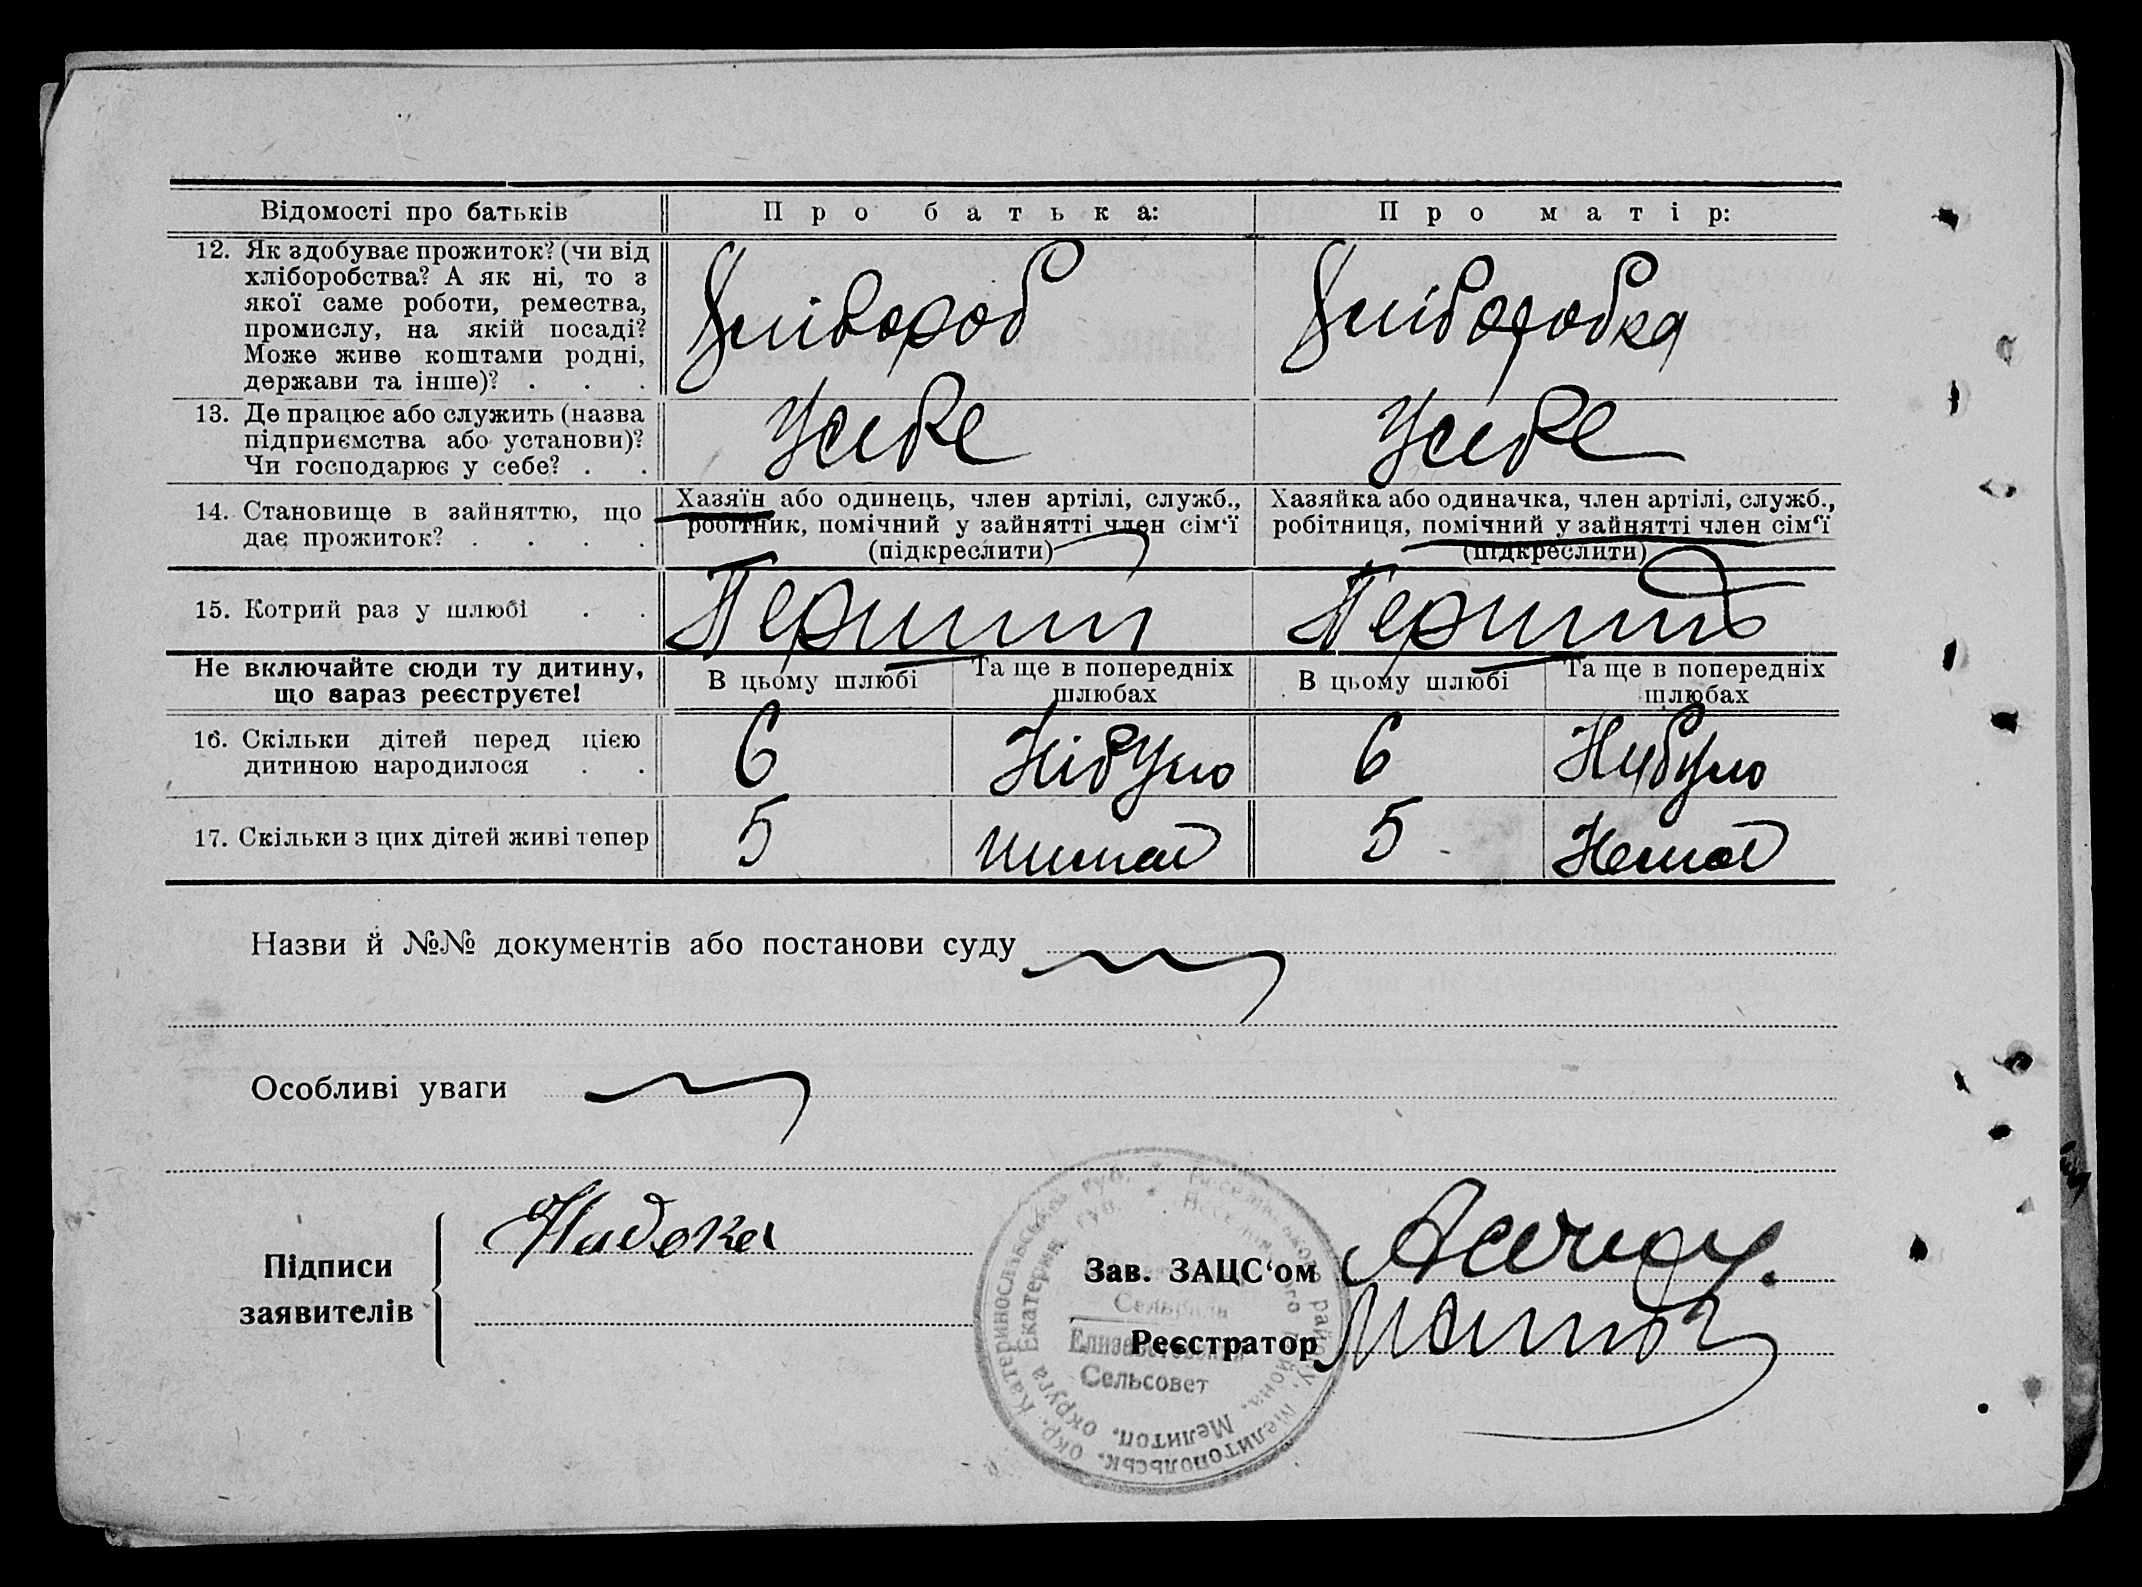 Відомості про батьків
Про батька:
Про матір:
12. Як здобуває прожиток? (чи від
хліборобства? А як ні, то з
якої саме роботи, ремества,
промислу, на якій посаді?
Може живе коштами родні,
держави та інше)? . . .
Хлібороб
Хліборобка
13. Де працює або служить (назва
підприємства або установи)?
Чи господарює у себе? . .
Усебе
Усебе
14. Становище в зайняттю, що
дає прожиток? . . . .
Хазяїн або одинець, член артілі, служб.,
робітник, помічний у зайнятті член сім‘ї
(підкреслити)
Хазяйка або одиначка, член артілі, служб.,
робітниця, помічний у зайнятті член сім‘ї
(підкреслити)
15. Котрий раз у шлюбі . .
Перший
Перший
Не включайте сюди ту дитину,
що зараз реєструєте!
В цьому шлюбі
Та ще в попередніх
шлюбах
В цьому шлюбі
Та ще в попередніх
шлюбах
16. Скільки дітей перед цією
дитиною народилося . .
6
Нібуло
6
Нибуло
17. Скільки з цих дітей живі тепер
5
Нимає
5
Немає
Назви й №№ документів або постанови суду
Особливі уваги
Підписи
заявителів
Надока
Зав. ЗАЦС‘ом
Реєстратор
Катеринославської губ. * Веселівського району, Мелитопольськ. окр.
Екатерин. губ. * Веселовского района, Мелитоп. округа
Сельрада
Елизаветовский
Сельсовет